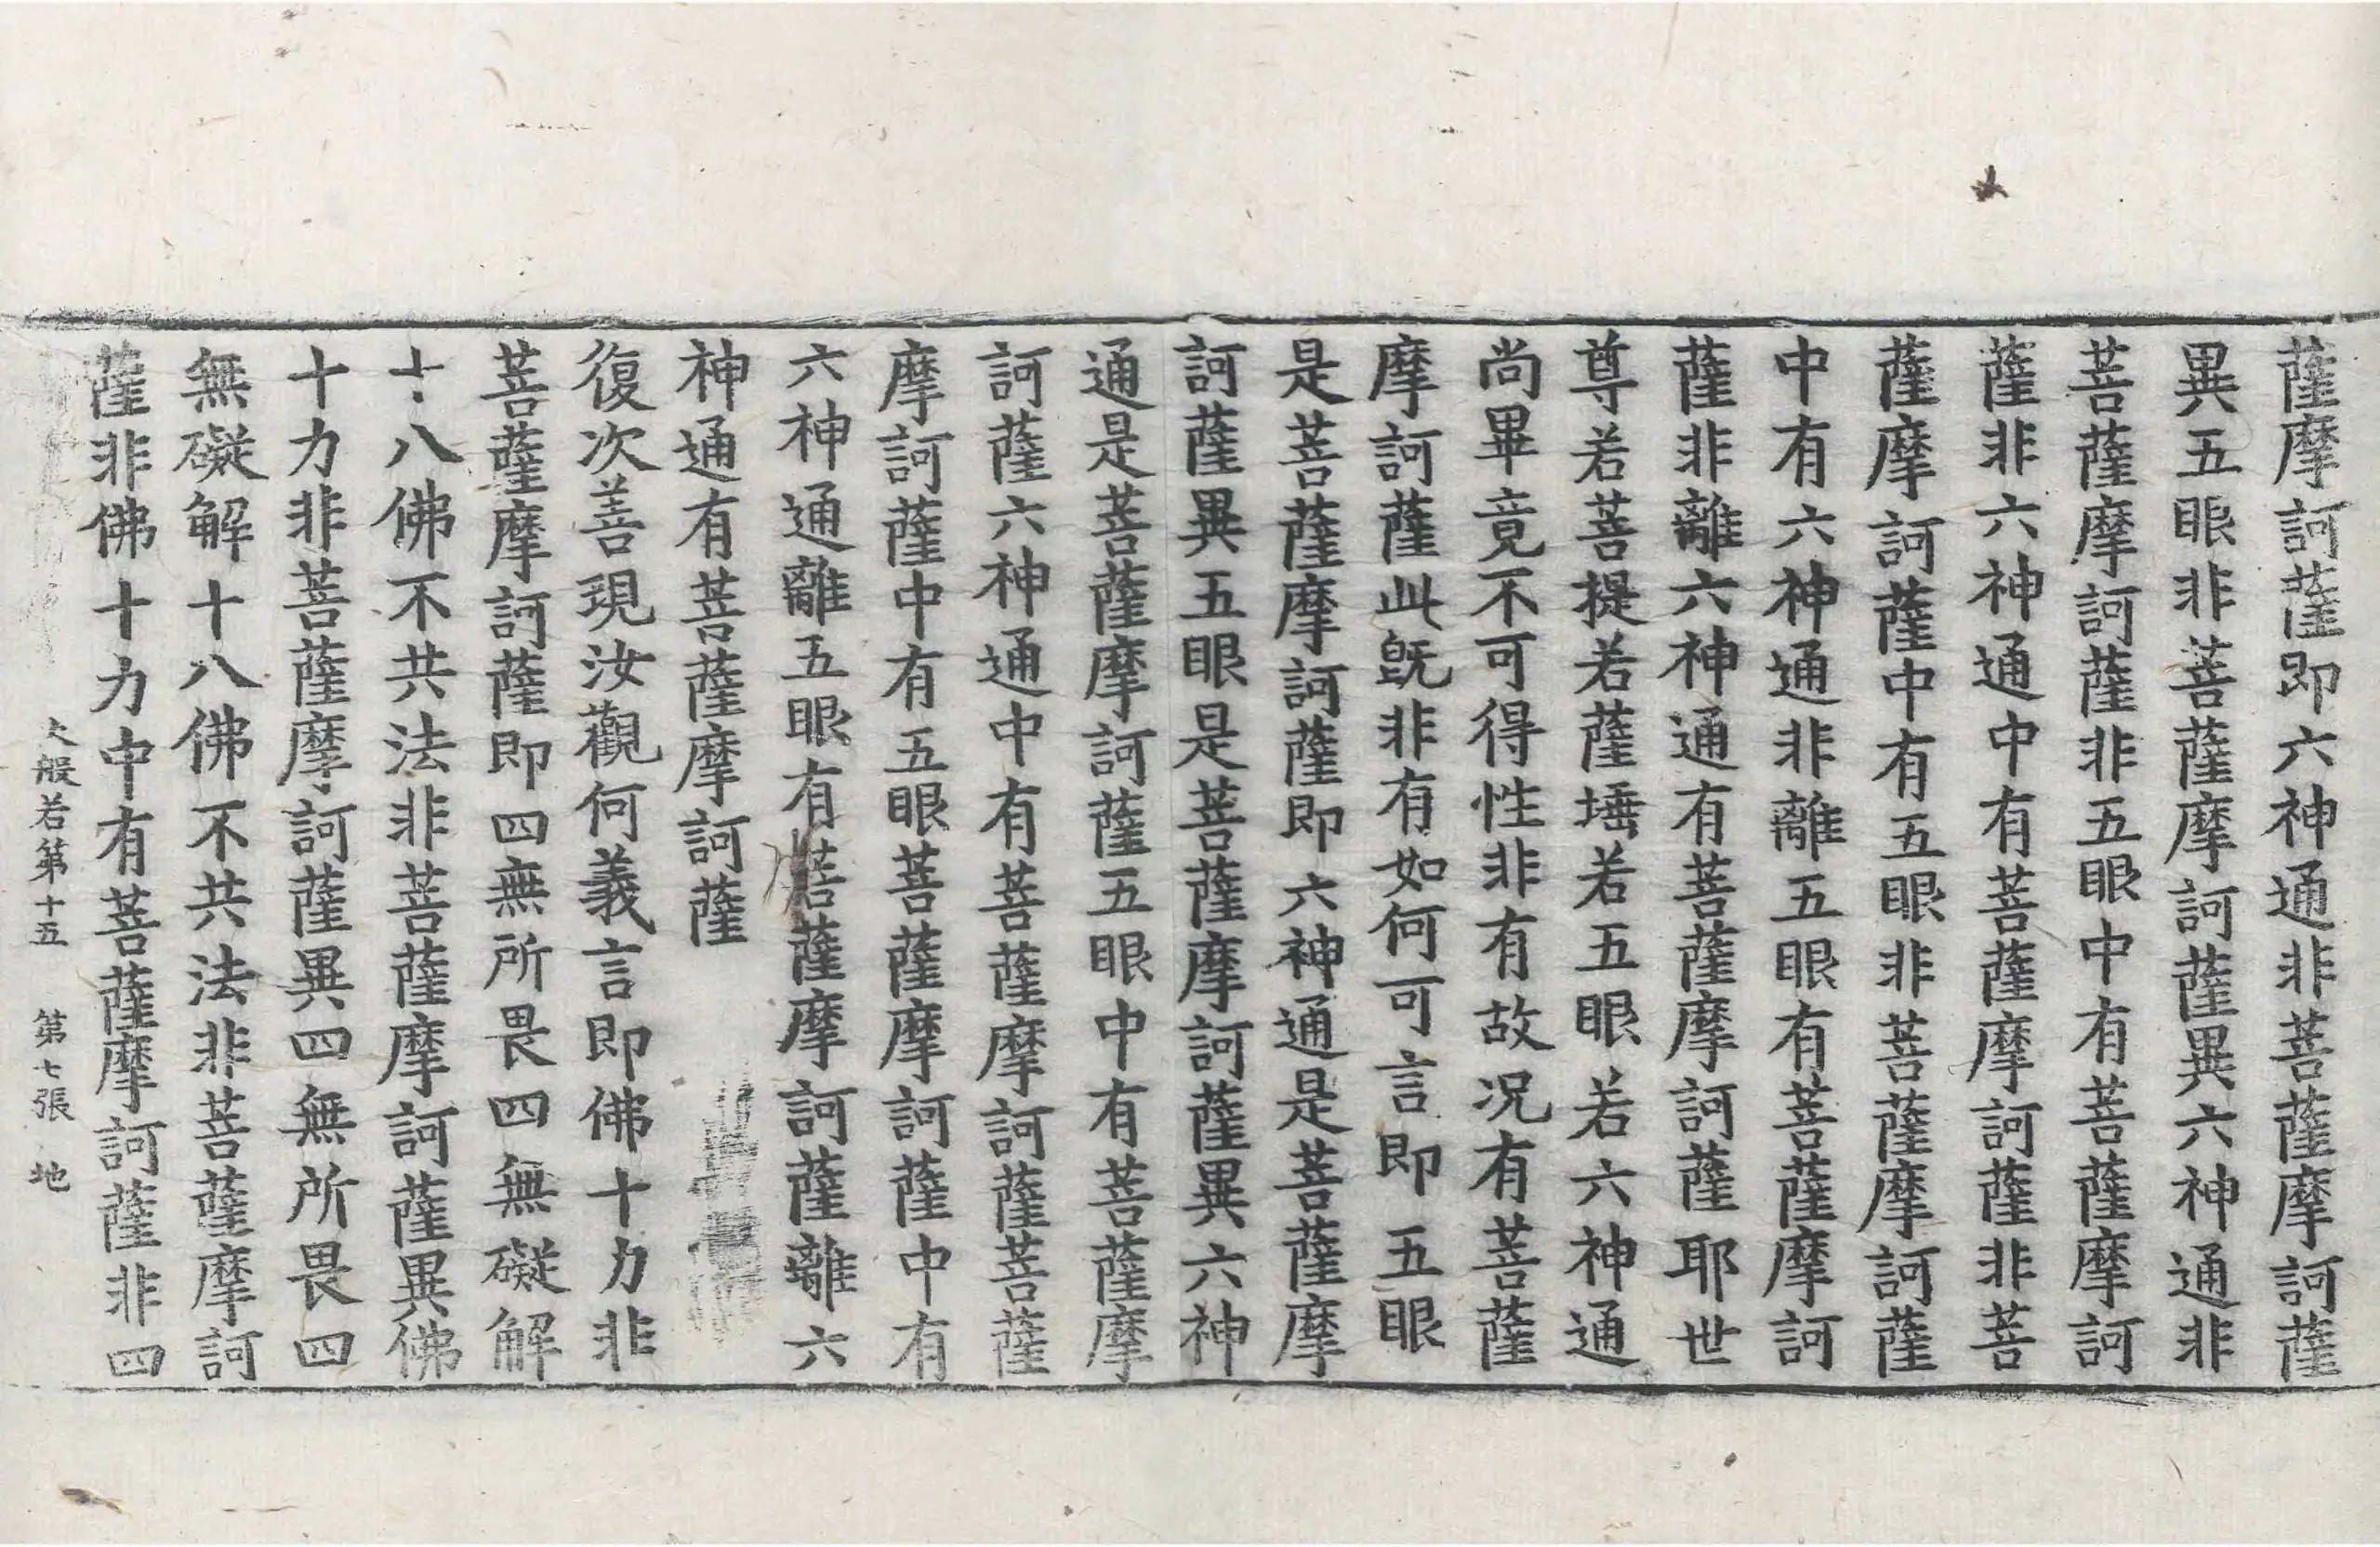 薩摩訶薩即六神通非菩薩摩訶薩
異五眼非菩薩摩訶薩異六神通非
菩薩摩訶薩非五眼中有菩薩摩訶
薩非六神通中有菩薩摩訶薩非菩
薩摩訶薩中有五眼非菩薩摩訶薩
中有六神通非離五眼有菩薩摩訶
薩非離六神通有菩薩摩訶薩耶世
尊若菩提若薩埵若五眼若六神通
尚畢竟不可得性非有故況有菩薩
摩訶薩此既非有如何可言即五眼
是菩薩摩訶薩即六神通是菩薩摩
訶薩異五眼是菩薩摩訶薩異六神
通是菩薩摩訶薩五眼中有菩薩摩
訶薩六神通中有菩薩摩訶薩菩薩
摩訶薩中有五眼菩薩摩訶薩中有
六神通離五眼有菩薩摩訶薩離六
神通有菩薩摩訶薩
復次善現汝觀何義言即佛十力非
菩薩摩訶薩即四無所畏四無礙解
十八佛不共法非菩薩摩訶薩異佛
十力非菩薩摩訶薩異四無所畏四
無礙解十八佛不共法非菩薩摩訶
薩非佛十力中有菩薩摩訶薩非四
大般若第十五 第七張 地